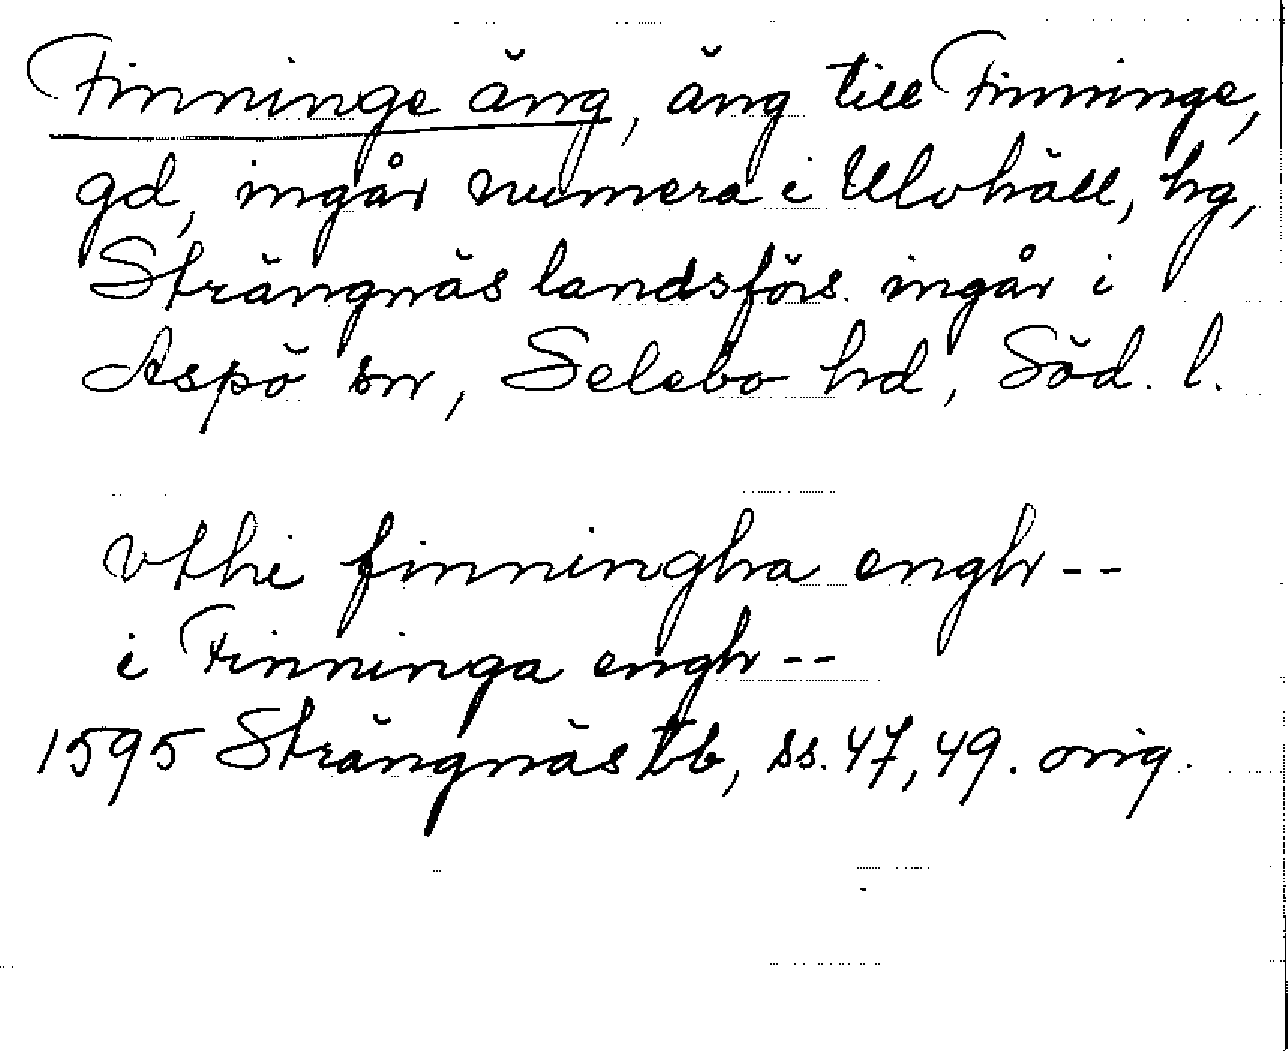 Finninge äng, äng till Finninge,
gd, ingår numera i Ulvhäll, hg,
Strängnäs landsförs. ingår i
Aspö sn, Selebo hd, Söd. l.
vthi finningha engh--
i Finninga engh--
1595 Strängnäs tb, ss. 47, 49. orig.